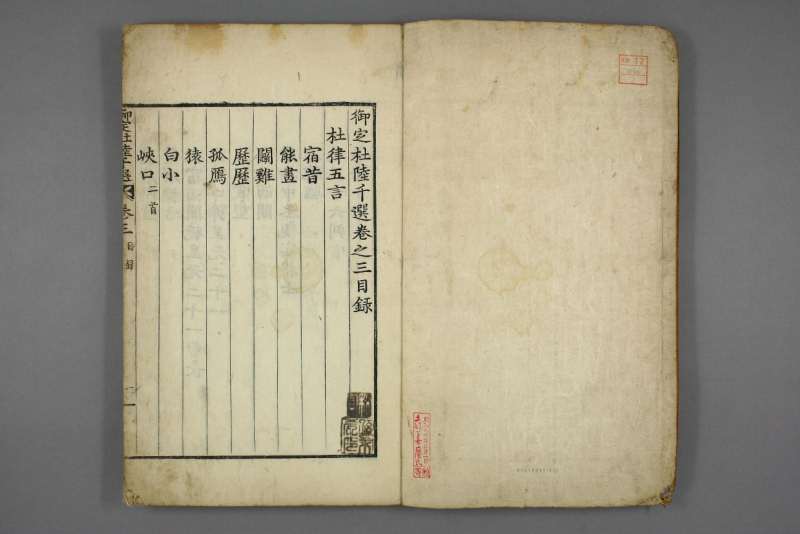 御定杜陸千選卷之三目錄
杜律五言
宿昔
能畫
鬭雞
歷歷
孤鴈
猿
白小
峽口 二首
御定杜陸千選 卷三 目錄 一